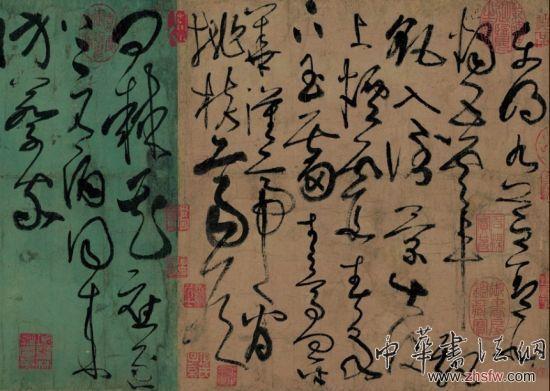 東明九芝蓋北
燭五雲車飄
飖入倒景出沒
上煙霞春泉
下玉霤青鳥向金
華漢帝看
桃核齊侯
問棘花應逐
上元酒同來
訪蔡家
中華書法網
www.zhsfw.com